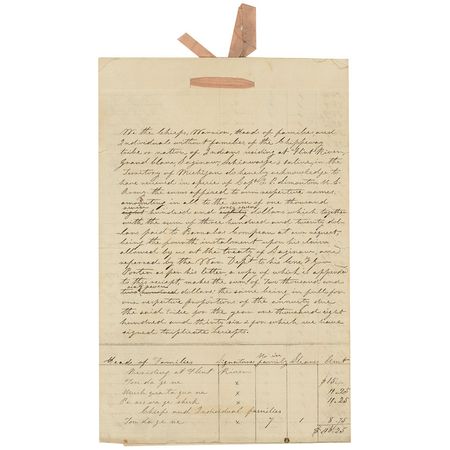 We the Chiefs, Warriors, Head of families and
Individuals without families of the Chippeway
tribe or nation of Indians residing at Flint River,
Grand Blanc, Saginaw, Shiawassee & elsewhere in the
Territory of Michigan do hereby acknowledge to
have received in specie of Capt. I. P. Simonton U.S.
Army the sums apposed to our respective names,
amounting in all to the sum of one thousand
seven
eight hundred and dollars which together
with the sum of three hundred and twenty dol-
lars paid to Barnabas Campeau at our request,
being the fourth instalment upon his claim
allowed by us at the treaty of Saginaw, and
referred by the War Dept. to his Exc.
Porter as per his letter a copy of which is append
to this receipt, makes the sum of Two thousand and
sixty seven
two hundred dollars the same being in full for
our respective proportions of the annuity due
the said tribe for the year one thousand eight
hundred and thirty six & for which we have
signed duplicate receipts.
Heads of Families Signature No in family Shares Amt
Residing at Flint River
Ton da ga ne x $15.
x 11.25
x 11.25
Chiefs and Individual families
Ton da ga ne x 7 1 8.75